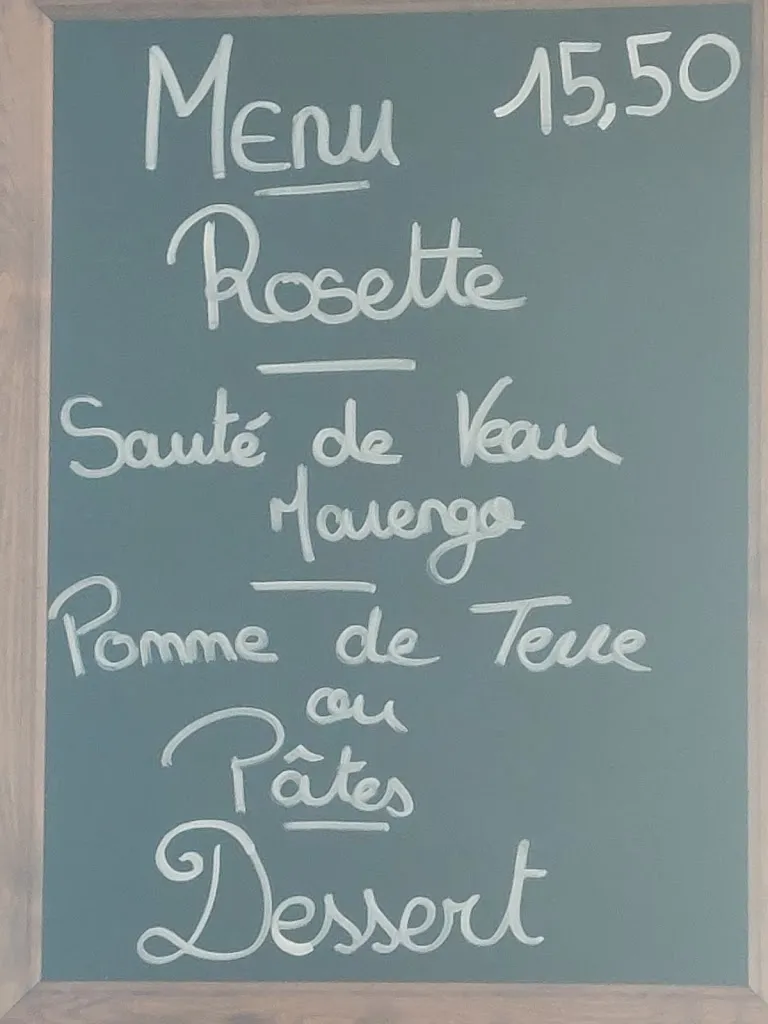 Menu 15,50
Rosette
Sauté de Veau
Marengo
Pomme de Terre
ou
Pâtes
Dessert